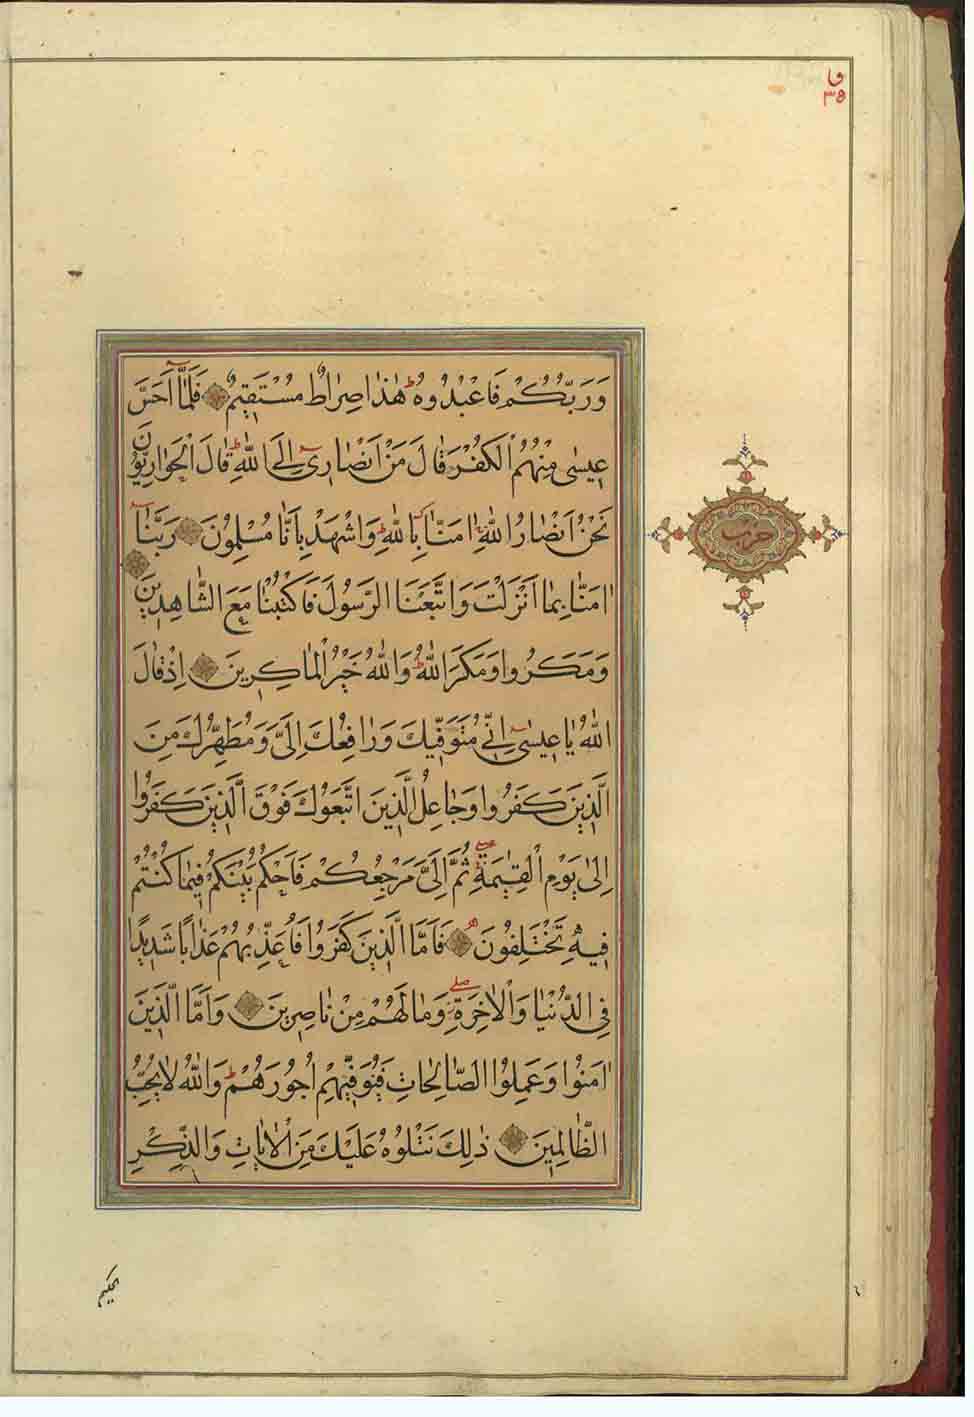 و
٣٥
وَرَبُّكُمْ فَاعْبُدُوهُ ط هٰذَا صِرَاطٌ مُسْتَقِيمٌ فَلَمَّٓا اَحَسَّ
عِيسٰى مِنْهُمُ الْكُفْرَ قَالَ مَنْ اَنْصَارِىٓ اِلَى اللّٰهِ ط قَالَ الْحَوَارِيُّونَ
نَحْنُ اَنْصَارُ اللّٰهِ اٰمَنَّا بِاللّٰهِ وَاشْهَدْ بِاَنَّا مُسْلِمُونَ رَبَّنَٓا
اٰمَنَّا بِمَا اَنْزَلْتَ وَاتَّبَعْنَا الرَّسُولَ فَاكْتُبْنَا مَعَ الشَّاهِدِينَ
وَمَكَرُوا وَمَكَرَ اللّٰهُ ط وَاللّٰهُ خَيْرُ الْمَاكِرِينَ اِذْ قَالَ
اللّٰهُ يَا عِيسٰىٓ اِنِّى مُتَوَفِّيكَ وَرَافِعُكَ اِلَىَّ وَمُطَهِّرُكَ مِنَ
الَّذِينَ كَفَرُوا وَجَاعِلُ الَّذِينَ اتَّبَعُوكَ فَوْقَ الَّذِينَ كَفَرُوا
اِلٰى يَوْمِ الْقِيٰمَةِ صلے ثُمَّ اِلَىَّ مَرْجِعُكُمْ فَاَحْكُمُ بَيْنَكُمْ فِيمَا كُنْتُمْ
فِيهِ تَخْتَلِفُونَ فَاَمَّا الَّذِينَ كَفَرُوا فَاُعَذِّبُهُمْ عَذَابًا شَدِيدًا
فِى الدُّنْيَا وَالْاٰخِرَةِ صلے وَمَا لَهُمْ مِنْ نَاصِرِينَ وَاَمَّا الَّذِينَ
اٰمَنُوا وَعَمِلُوا الصَّالِحَاتِ فَيُوَفِّيهِمْ اُجُورَهُمْ ط وَاللّٰهُ لَا يُحِبُّ
الظَّالِمِينَ ذٰلِكَ نَتْلُوهُ عَلَيْكَ مِنَ الْاٰيَاتِ وَالذِّكْرِ
حزب
الحكيم